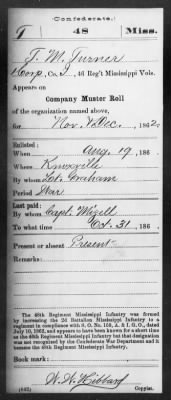 (Confederate.)
T 48 Miss.
T. M. Turner
Co. I, 46 Reg't Mississippi Vols.
Appears on
Company Muster Roll
of the organization named above,
for Nov. & Dec., 1862.
Enlisted:
When Aug. 19, 186 .
Where Knoxville
By whom Graham
Period War
Last paid:
By whom Capt.
To what time Oct. 31, 186 .
Present or absent Present
Remarks:
The 48th Regiment Mississippi Infantry was formed by
increasing the 2d Battalion Mississippi Infantry to a
regiment in compliance with S. O. No. 159, A. & I. G. O., dated
July 10, 1862, and appears to have been known for a short time
as the 49th Regiment Mississippi Infantry but that designation
was not recognized by the Confederate War Department and it
became the 48th Regiment Mississippi Infantry.
Book mark:
W. A. Hibbard
(642) Copyist.